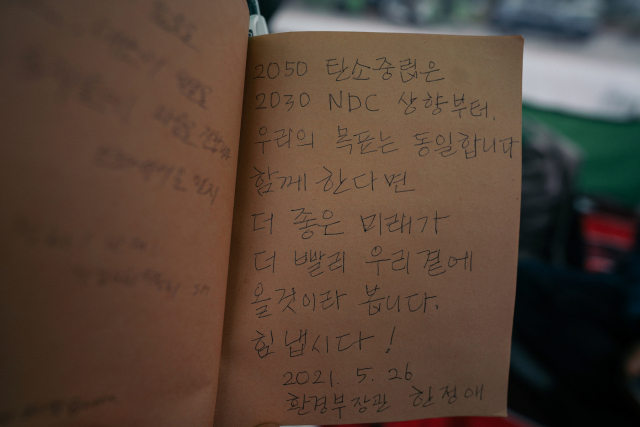 2050 탄소중립은
2030 NDC 상향부터.
우리의 목표는 동일합니다
함께 한다면
더 좋은 미래가
더 빨리 우리곁에
올것이라 봅니다.
힘냅시다!
2021. 5. 26
환경부장관 한정애